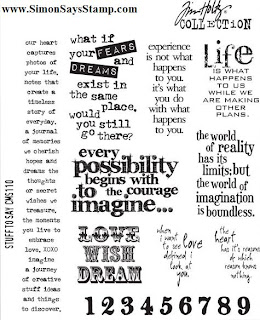 www.SimonSaysStamp.com
Tim Holtz
COLLECTION
our heart
captures
photos of
your life,
notes that
create a
timeless
story of
everyday.
a journal
of memories
we cherish
hopes and
dreams the
thoughts
or secret
wishes we
treasure,
the moments
you live to
embrace
love, XOXO
imagine
a journey
of creative
stuff ideas
and things
to discover,
STUFF TO SAY CMS110
what if
your FEARS
and
DREAMS
exist in
the same
place,
would
you still
go there?
experience
is not what
happens
to you.
it's what
you do
with what
happens
to you.
life
IS WHAT
HAPPENS
TO US
WHILE WE
ARE MAKING
OTHER
PLANS.
every
possibility
begins with
to the courage
imagine...
the world
of reality
has its
limits; but
the world of
imagination
is boundless.
LOVE
WISH
DREAM
when
i want
to see love
defined i
look at
you.
the
heart
has it's reasons
of which
reason knows
nothing.
123456789